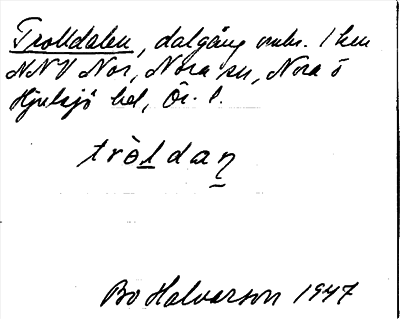 Trolldalen, dalgång omkr. 1 km
NNV Nor, Nora sn, Nora o
Hjulsjö hd, Ör. l.
tròldaṉ
Bo Halvarson 1947